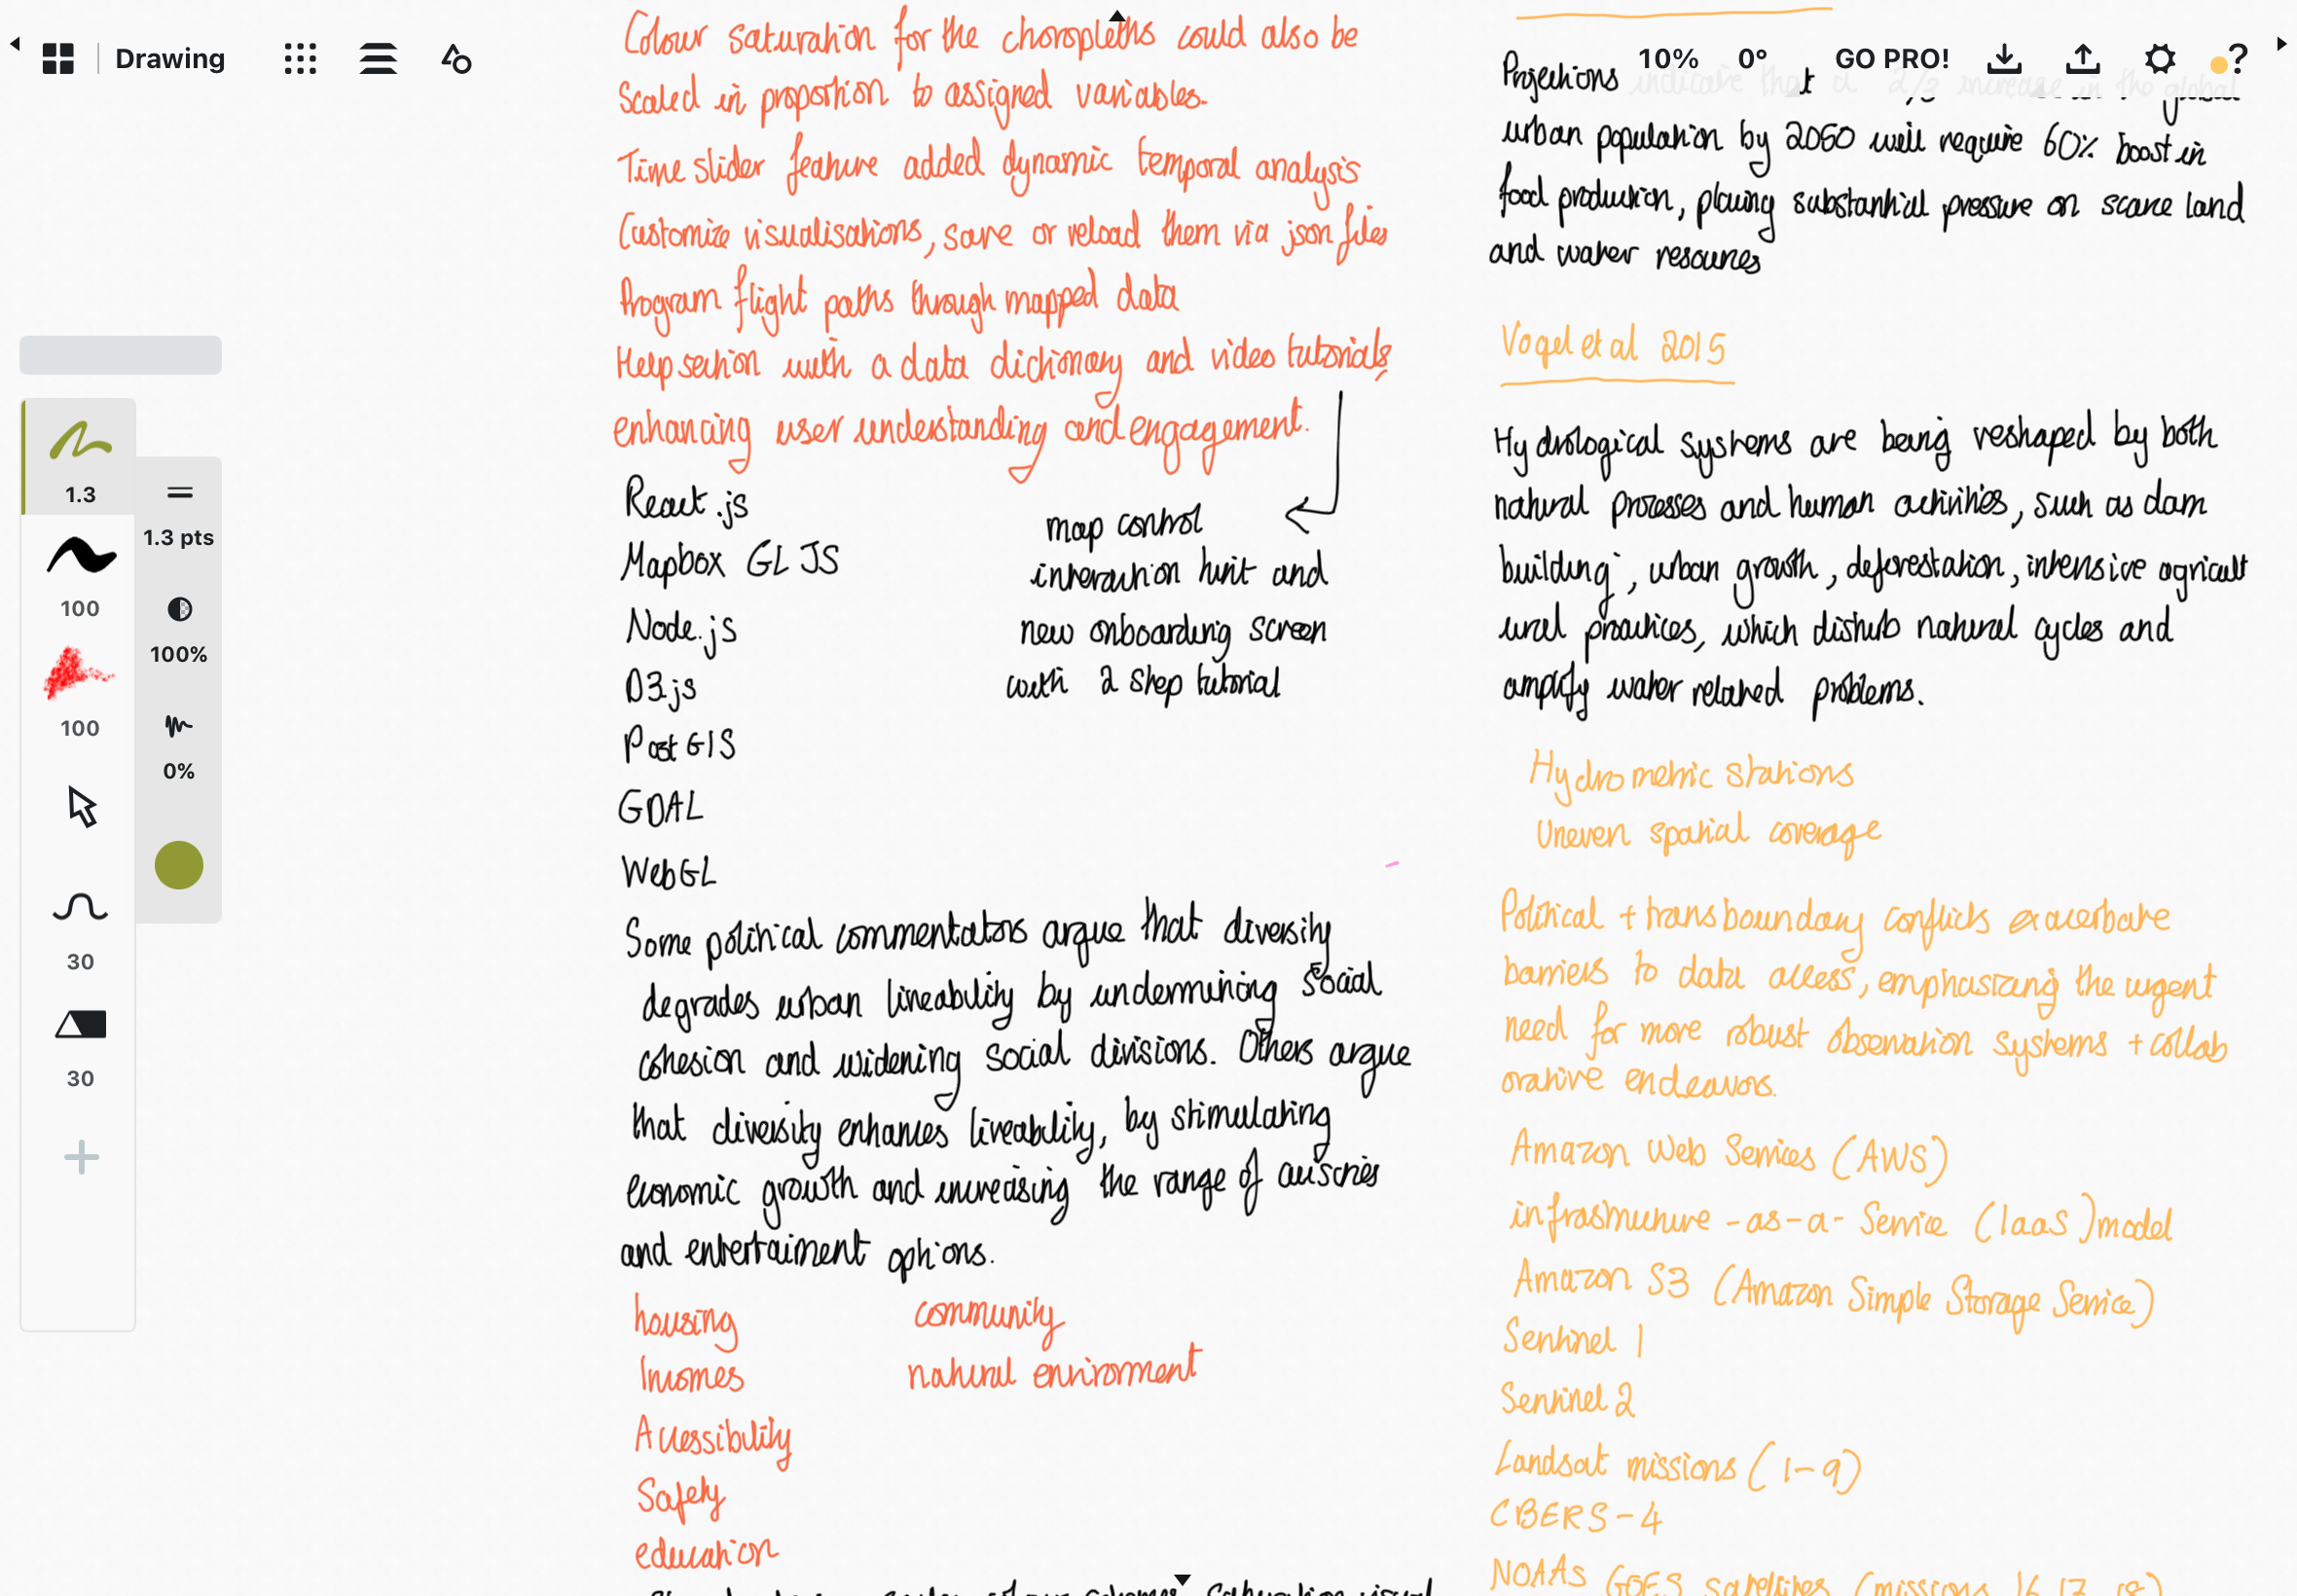 Drawing
10%
0°
GO PRO!
?
1.3
100
100
30
30
1.3 pts
100%
0%
Colour saturation for the choropleths could also be
Scaled in proportion to assigned variables.
Time slider feature added dynamic temporal analysis
Customize visualisations, save or reload them via json files
Program flight paths through mapped data
Help section with a data dictionary and video tutorials
enhancing user understanding and engagement.
React.js
Mapbox GL JS
Node.js
D3.js
Post GIS
GDAL
WebGL
map control
interaction hint and
new onboarding screen
with 2 step tutorial
Some political commentators argue that diversity
degrades urban liveability by undermining social
cohesion and widening social divisions. Others argue
that diversity enhances liveability, by stimulating
economic growth and increasing the range of
and entertaiment options.
housing
Incomes
Accessibility
Safety
education
community
natural enviroment
Projections indicate that a 2/3 increase in the global
urban population by 2050 will require 60% boost in
food production, placing substantial pressure on scarce land
and water resources
Vogel et al 2015
Hydrological systems are being reshaped by both
natural processes and human activities, such as dam
building, urban growth, deforestation, intensive agricult
ural practices, which disturb natural cycles and
amplify water related problems.
Hydrometric stations
Uneven spatial coverage
Political + transboundary conflicts exacerbate
barriers to data access, emphasizing the urgent
need for more robust observation systems + collab
orative endeavors.
Amazon Web Services (AWS)
infrastructure -as-a- Service (IaaS) model
Amazon S3 (Amazon Simple Storage Service)
Sentinel 1
Sentinel 2
Landsat missions (1-9)
CBERS-4
NOAAs GOES satellites (missions 16, 17, 18)